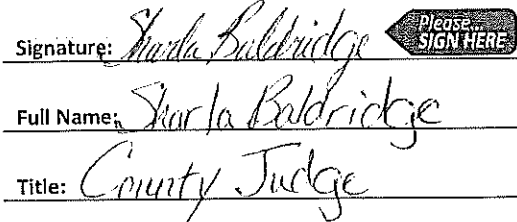 Signature: Sharla Baldridge Please... SIGN HERE
Full Name: Sharla Baldridge
Title: County Judge